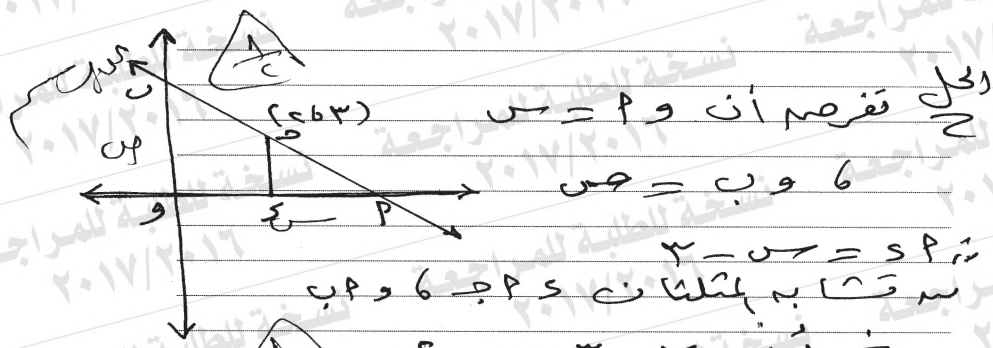 الحل
نفرض أن و P = س
، و ب = ص
∴ P د = س - ٣
من تشابه المثلثان د P جـ ، و P ب
(٣ ، ٢)
جـ
ب
ص
و
د
س
P
نسخة الطلبة للمراجعة
٢٠١٧/٢٠١٦